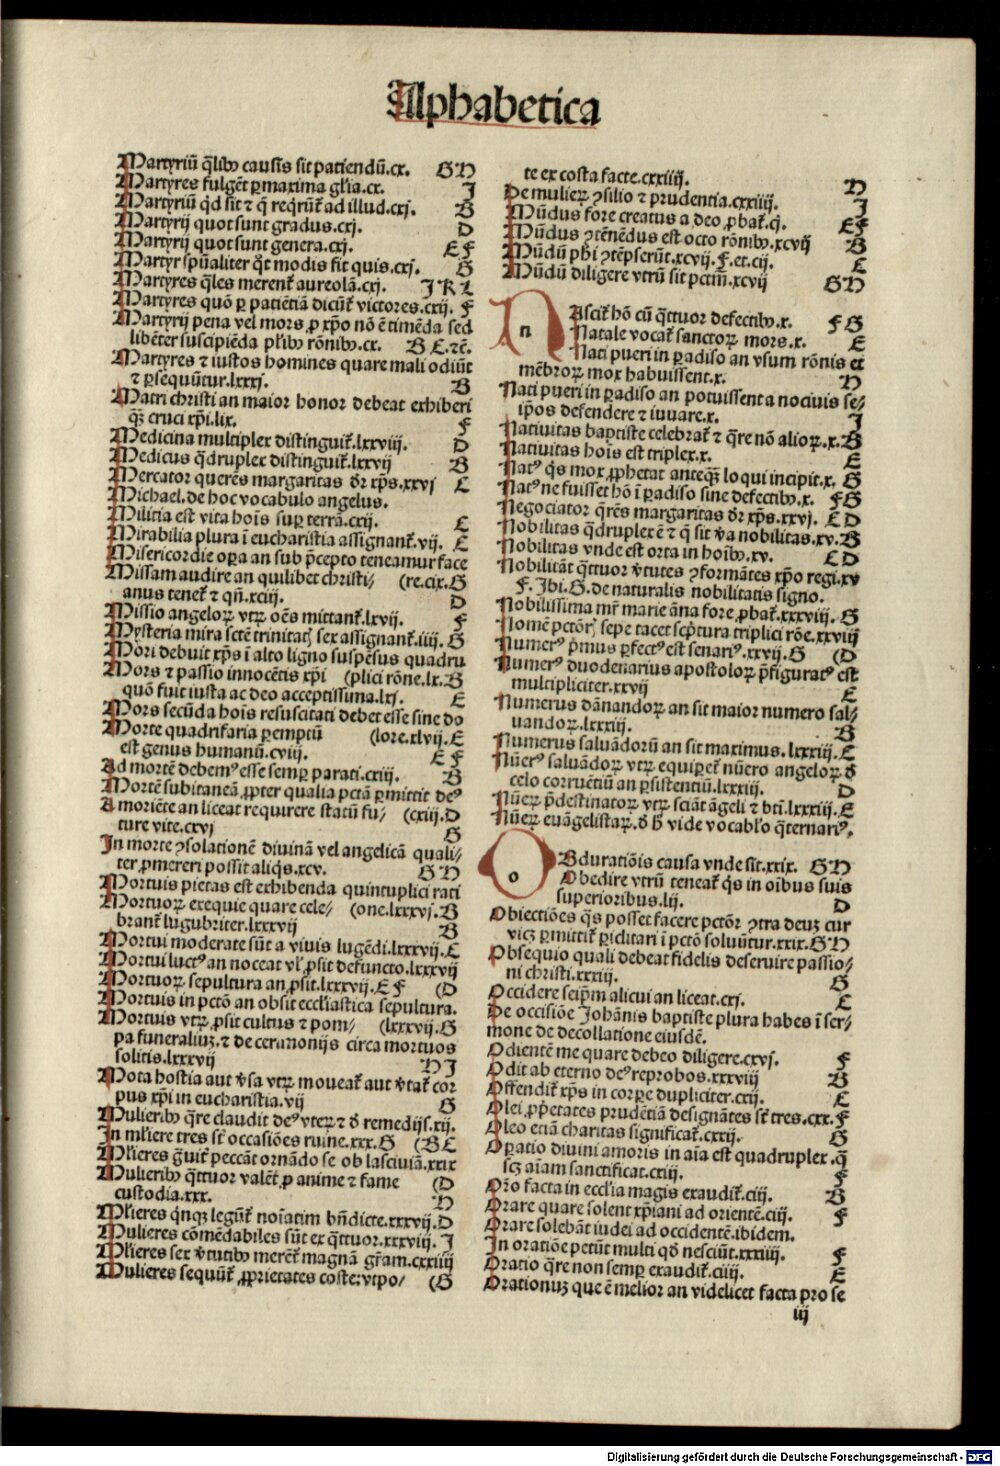 Alphabetica
Martyriū q̄libꝫ causis sit patiendū.cx. G H
Martyres fulgēt ꝑ maxima gl̓ia.cx. I
Martyriū qd̓ sit ⁊ q̄ req̄rūt̓ ad illud.cxj. B
Martyrij quot sunt gradus.cxj. D
Martyrij quot sunt genera.cxj. E F
Martyr spūaliter q̄t modis fit quis.cxj. G
Martyres q̄les merent̓ aureolā.cxj. I K L
Martyres quō ꝑ patiētiā dicūt̓ victores.cxij. F
Martyrij pena vel mors ꝓ xp̄o nō ē timēda sed
libēter suscipiēda pl̓ibꝫ rōnibꝫ.cx. B C.⁊c̄.
Martyres ⁊ iustos homines quare mali odiūt
⁊ ꝑsequūtur.lxxxj. B
Matri christi an maior honor debeat exhiberi
q̄ꝫ cruci xp̄i.lix. F
Medicina multiplex distinguit̓.lxxviij. D
Medicus q̄druplex distinguit̓.lxxvij B
Mercator querēs margaritas d̓r xp̄s.xxvj C
Michael.de hoc vocabulo angelus.
Militia est vita hoīs suꝑ terrā.cxij. C
Mirabilia plura ī eucharistia assignant̓.vij. E
Misericordie oꝑa an sub p̄cepto teneamur face
Missam audire an quilibet christi/ (re.cix.G
anus tenet̓ ⁊ qn̄.xciij. D
Missio angeloꝝ vtꝝ oēs mittant̓.lxvij. F
Mysteria mira sctē trinitatꝭ sex assignant̓.iiij. G
Mori debuit xp̄s ī alto ligno suspēsus quadru
Mors ⁊ passio innocētis xp̄i (plici rōne.lx.B
quō fuit iusta ac deo acceptissima.lxj. E
Mors secūda hoīs resuscitati debet esse sine do
Morte quadrifaria ꝑemptū (lore.xlvij.E
est genus humanū.cviij. E F
Ad mortē debemꝰ esse semꝑ parati.cxiij. B
Mortē subitaneā ꝓpter qualia pctā ꝑmittit deꝰ
A moriēte an liceat requirere statū fu/ (cxiij.D
ture vite.cxvj G
In morte ꝯsolationē diuinā vel angelicā quali/
ter ꝓmereri possit aliq̄s.xcv. G H
Mortuis pietas est exhibenda quintuplici rati
Mortuoꝝ exequie quare cele/ (one.lxxxvj.B
brant̓ lugubriter.lxxxvij B
Mortui moderate sūt a viuis lugēdi.lxxxvij.C
Mortui luctꝰ an noceat vl̓ ꝓsit defuncto.lxxxvij
Mortuoꝝ sepultura an ꝓsit.lxxxvij.E F (D
Mortuis in pctō an obsit eccl̓iastica sepultura.
Mortuis vtꝝ ꝓsit cultus ⁊ pom/ (lxxxvij.G
pa funeraliuꝫ.⁊ de cerimonijs circa mortuos
solitis.lxxxvij H I
Mota hostia aut v̓sa vtꝝ moueat̓ aut v̓tat̓ cor
pus xp̄i in eucharistia.vij G
Mulieribꝫ q̄re claudit deꝰ vteꝝ ⁊ d̓ remedijs.xij.
In ml̓iere tres st̓ occasiōes ruine.xxx.G (B C
Ml̓ieres g̓uit̓ peccāt ornādo se ob lasciuiā.xxix
Mulieribꝫ q̄ttuor valēt̓ ꝓ anime ⁊ fame (D
custodia.xxx. H
Ml̓ieres q̓nqꝫ legūt̓ noīatim bn̄dicte.xxxvij.D
Mulieres cōmēdabiles sūt ex q̄ttuor.xxxviij. I
Ml̓ieres sex v̓tutibꝫ merēt̓ magnā gr̄am.cxxiiij
Mulieres sequūt̓ ꝓprietates coste:vtpo/ (G
te ex costa facte.cxxiiij. H
De mulieꝝ ꝯsilio ⁊ prudentia.cxxiiij. I
Mūdus fore creatus a deo ꝓbat̓.q̄. E F
Mūdus ꝯtēnēdus est octo rōnibꝫ.xcvij B
Mūdū pb̓i ꝯtēpserūt.xcvij.F.et.cij. C
Mūdū diligere vtrū sit pctm̄.xcvij G H
n Ascit̓ hō cū q̄ttuor defectibꝫ.x. F G
Natale vocat̓ sanctoꝝ mors.x. E
Nati pueri in ꝑadiso an vsum rōnis et
mēbroꝝ mox habuissent.x. H
Nati pueri in ꝑadiso an potuissent a nociuis se/
ip̄os defendere ⁊ iuuare.x. I
Natiuitas baptiste celebrat̓ ⁊ q̄re nō alioꝝ.x.B
Natiuitas hoīs est triplex.x. E
Natꝰ q̄s mox ꝓphetat anteq̄ꝫ loqui incipit.x. G
Natꝰ ne fuisset hō ī ꝑadiso sine defectibꝫ.x. F G
Negociator q̄rēs margaritas d̓r xp̄s.xxvj. C D
Nobilitas q̄druplex ē ⁊ q̄ sit v̓a nobilitas.xv.B
Nobilitas vnde est orta in hoībꝫ.xv. C D
Nobilitāt q̄ttuor v̓tutes ꝯformātes xp̄o regi.xv
F. Ibi.G.de naturalis nobilitatis signo.
Nobilissima mr̄ marie āna fore ꝓbat̓.xxxviij. G
Nomē pctōrꝭ sepe tacet sc̓ptura triplici rōe.xxviij
Numerꝰ p̓mus ꝑfectꝰ est senariꝰ.xxvij.G (D
Numerꝰ duodenarius apostoloꝝ p̄figuratꝰ est
multipliciter.xxvij E
Numerus dānandoꝝ an sit maior numero sal/
uandoꝝ.lxxxiij. B
Numerus saluādorū an sit maximus.lxxxiij.C
Nūerꝰ saluādoꝝ vtꝝ equiꝑet̓ nūero angeloꝝ d̓
celo corruētiū an ꝑsistentiū.lxxxiij. D
Nūeꝝ p̄destinatoꝝ vtꝝ sciāt āgeli ⁊ bt̄i.lxxxiij.E
Nūeꝝ euāgelistaꝝ.d̓ h̓ vide vocabl̓o q̄ternariꝰ.
o Bduratiōis causa vnde sit.xxix. G H
Obedire vtrū teneat̓ q̄s in oībus suis
superioribus.lij. D
Obiectiōes q̄s posset facere pctōr ꝯtra deuꝫ cur
vicꝫ ꝑmittit̓ ꝑiclitari ī pctō soluūtur.xxix.G H
Obsequio quali debeat fidelis deseruire passio/
ni christi.xxxiij. G
Occidere seip̄m alicui an liceat.cxj. C
De occisiōe Johānis baptiste plura habes ī ser/
mone de decollatione eiusdē.
Odientē me quare debeo diligere.cxvj. F
Odit ab eterno deꝰ reprobos.xxxviij B
Offendit̓ xp̄s in corꝑe dupliciter.cxij. C
Olei ꝓp̓etates prudētiā designātes st̓ tres.cxx. F
Oleo etiā charitas significat̓.cxxij. G
Oꝑatio diuini amoris in aīa est quadruplex.q̄
scꝫ aīam sanctificat.cxiij. F
Or̄o facta in eccl̓ia magis exaudit̓.ciij. B
Orare quare solent xp̄iani ad orientē.ciij. F
Orare solebāt iudei ad occidentē.ibidem.
In oratiōe petūt multi qd̓ nesciūt.xxxiiij. F
Oratio q̄re non semꝑ exaudit̓.ciiij. E
Orationuꝫ que ē melior an videlicet facta pro se
iij
Digitalisierung gefördert durch die Deutsche Forschungsgemeinschaft - DFG